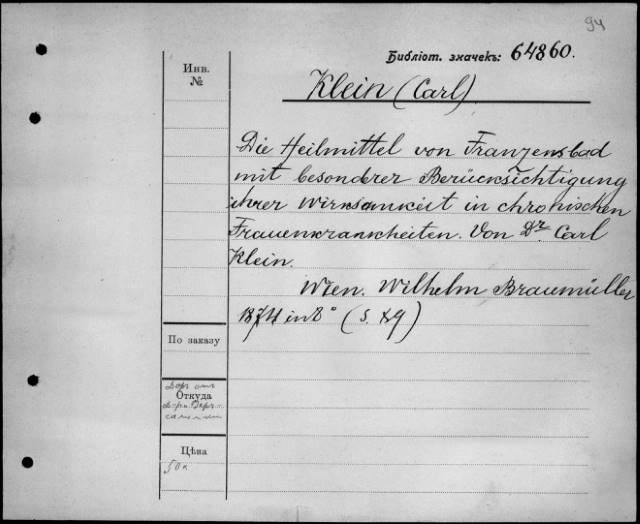 94
Библіот. значекъ: 64860.
Инв.
№
Klein (Carl)
Die Heilmittel von Franzensbad
mit besondrer Berücksichtigung
ihrer Wirksamkeit in chronischen
Frauenkrankheiten. Von Dr Carl
Klein.
Wien. Wilhelm Braumüller
1874 in 8° (S. 89)
По заказу
Даръ отъ
Откуда
Цѣна
50к